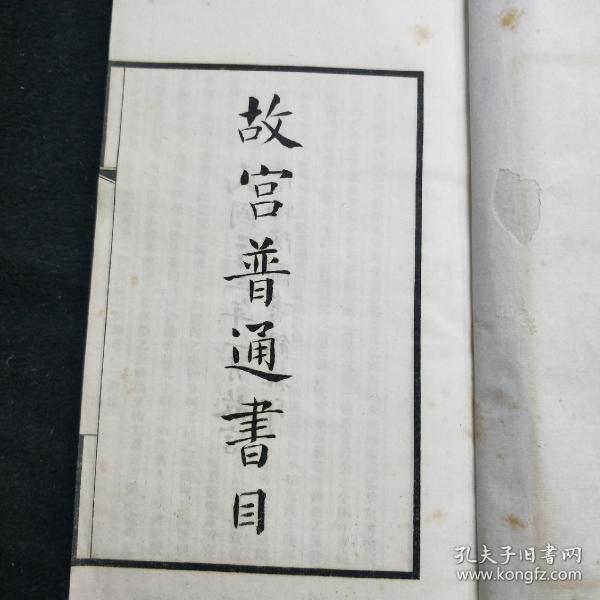 故宫普通書目
孔夫子旧书网
www.kongfz.com